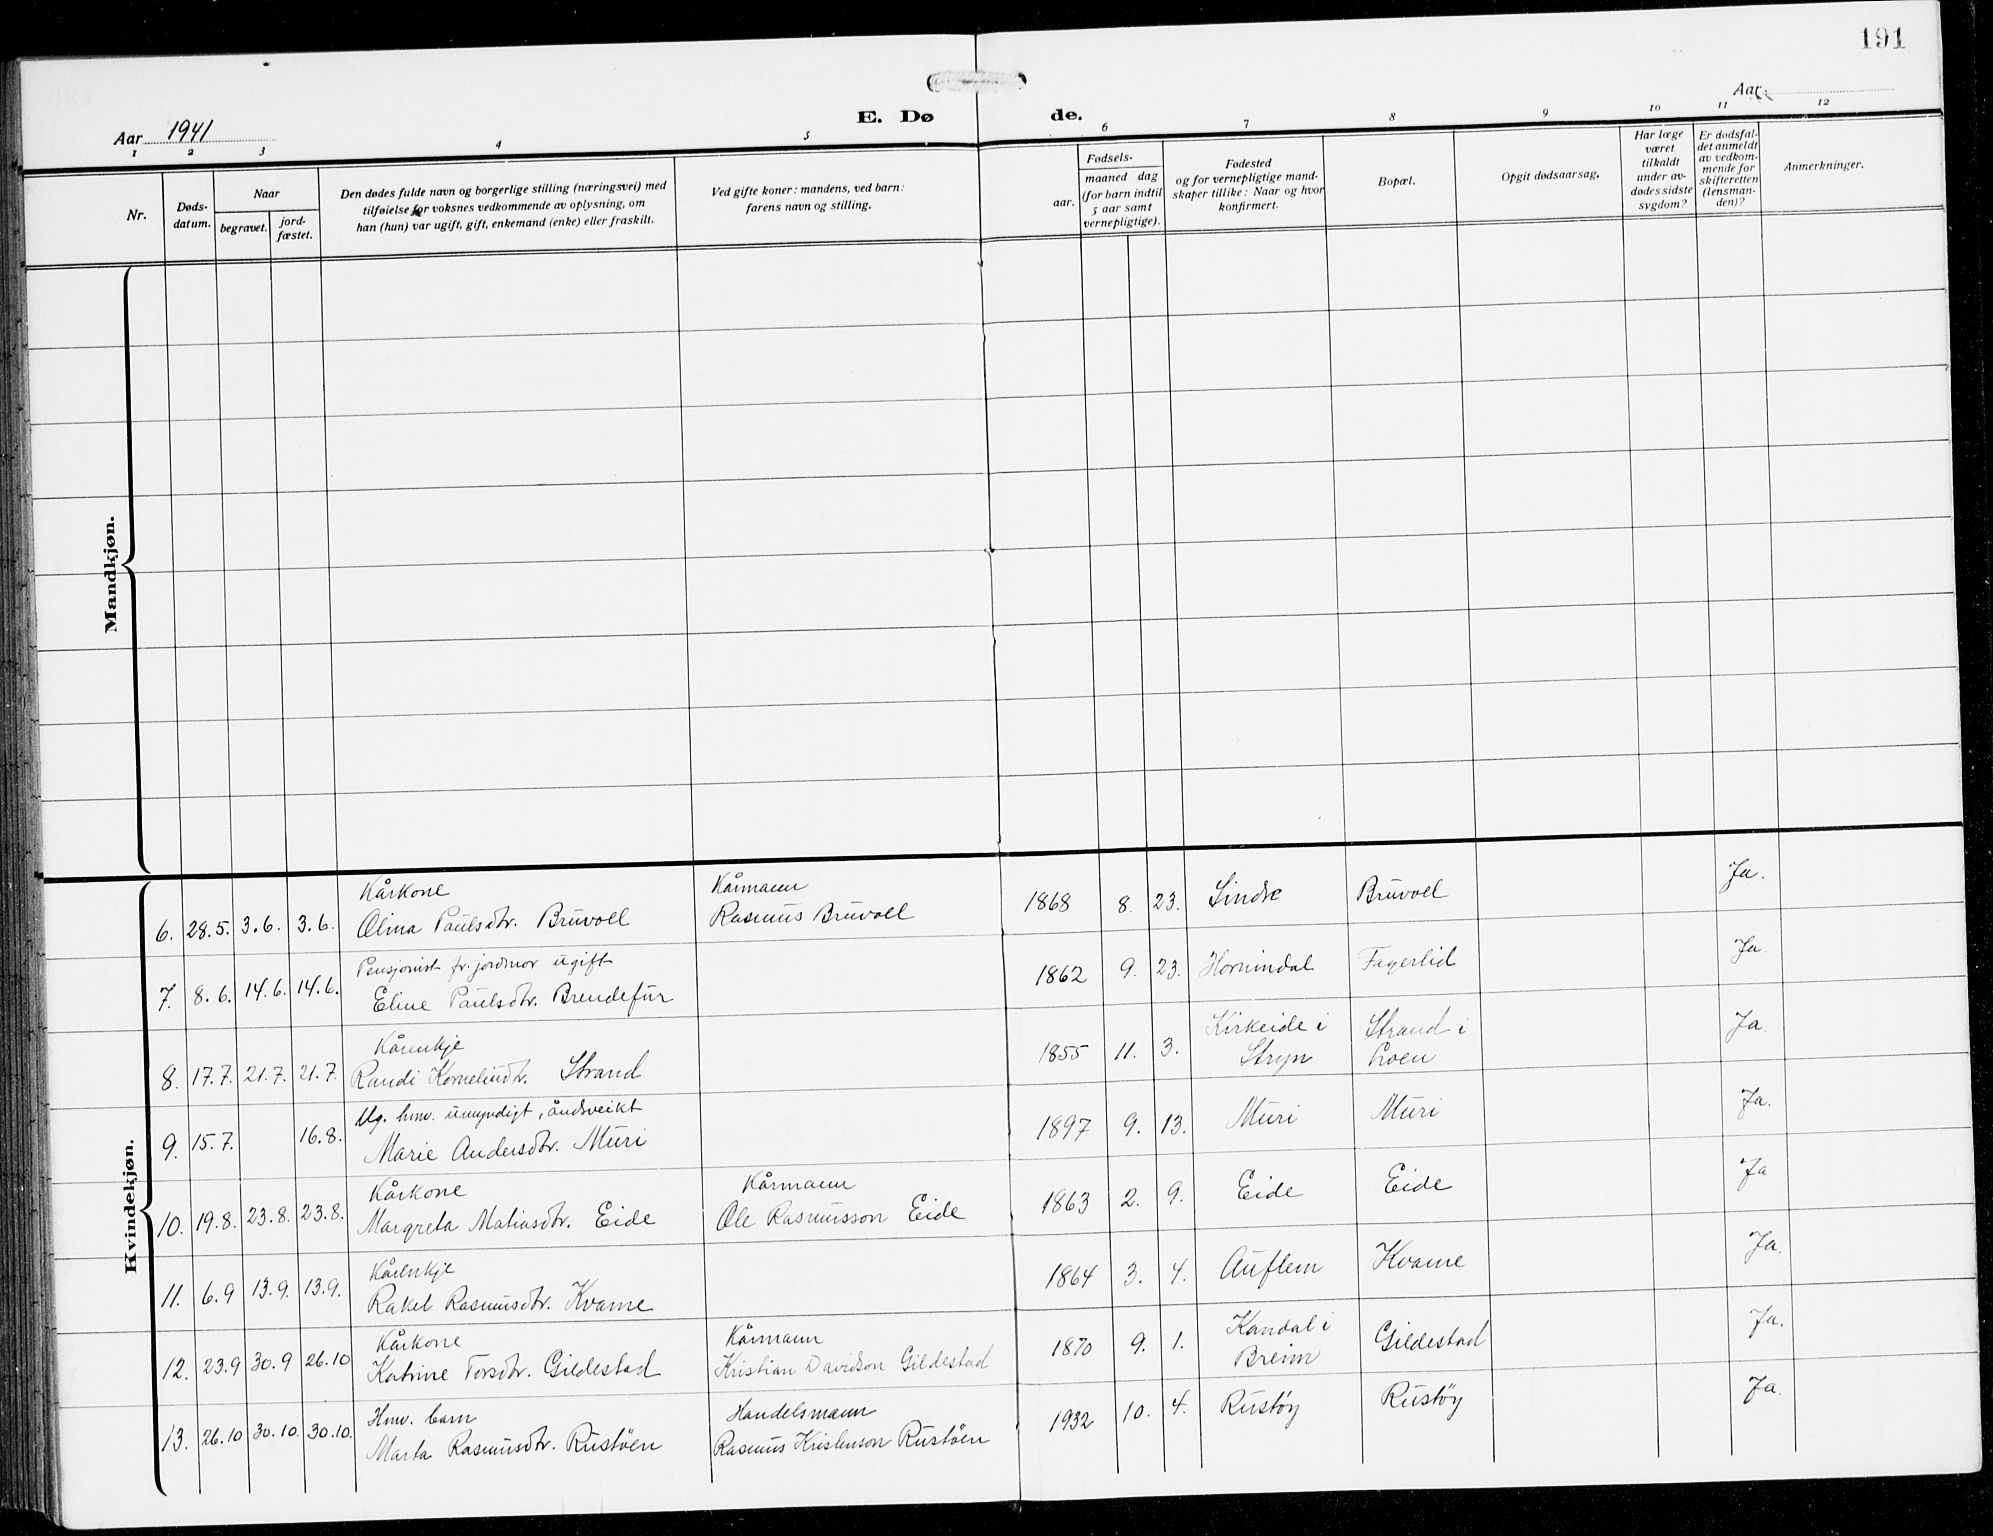 191
Aar 1941
E. Dø de.
Aar
1 2 3 4 5 6 7 8 9 10 11 12
Nr.
Døds-
datum.
Naar
begravet.
jord-
fæstet.
Den dødes fulde navn og borgerlige stilling (næringsvei) med
tilføielse for voksnes vedkommende av oplysning, om
han (hun) var ugift, gift, enkemand (enke) eller fraskilt.
Ved gifte koner: mandens, ved barn:
farens navn og stilling.
Fødsels-
aar.
maaned dag
(for barn indtil
5 aar samt
vernepligtige).
Fødested
og for vernepligtige mand-
skaper tillike: Naar og hvor
konfirmert.
Bopæl.
Opgit dødsaarsag.
Har læge
været
tilkaldt
under av-
dødes sidste
sygdom?
Er dødsfal-
det anmeldt
av vedkom-
mende for
skifteretten
(lensman-
den)?
Anmerkninger.
Mandkjøn.
Kvindekjøn.
Kårkone Kårmann
6. 28.5. 3.6. 3.6. Olina Paulsdtr. Bruvoll Rasmus Bruvoll 1868 8. 23. Linde Bruvoll Ja.
Pensjonist fr. jordmor ugift
7. 8.6. 14.6. 14.6. Eline Paulsdtr. Brendefur 1862 9. 23. Hornindal Fagerlid Ja.
Kårenkje Kirkeide i Strand i
8. 17.7. 21.7. 21.7. Randi Korneliusdtr. Strand 1855 11. 3. Stryn Loen Ja.
Ug. hmv. umyndigt, åndsveikt
9. 15.7. 16.8. Marie Andersdtr. Muri 1897 9. 13. Muri Muri Ja.
Kårkone Kårmann
10. 19.8. 23.8. 23.8. Margreta Matiasdtr. Eide Ole Rasmusson Eide 1863 2. 9. Eide Eide Ja
Kårenkje
11. 6.9 13.9. 13.9. Rakel Rasmusdtr. Kvame 1864 3. 4. Auflem Kvame Ja.
Kårkone Kårmann Kandal i
12. 23.9 30.9 26.10 Katrine Torsdtr. Gildestad Kristian Davidson Gildestad 1870 9. 1. Breim Gildestad Ja.
Hmv. barn Handelsmann
13. 26.10 30.10. 30.10. Marta Rasmusdtr. Rustøen Rasmus Kristenson Rustøen 1932 10. 4. Rustøy Rustøy Ja.